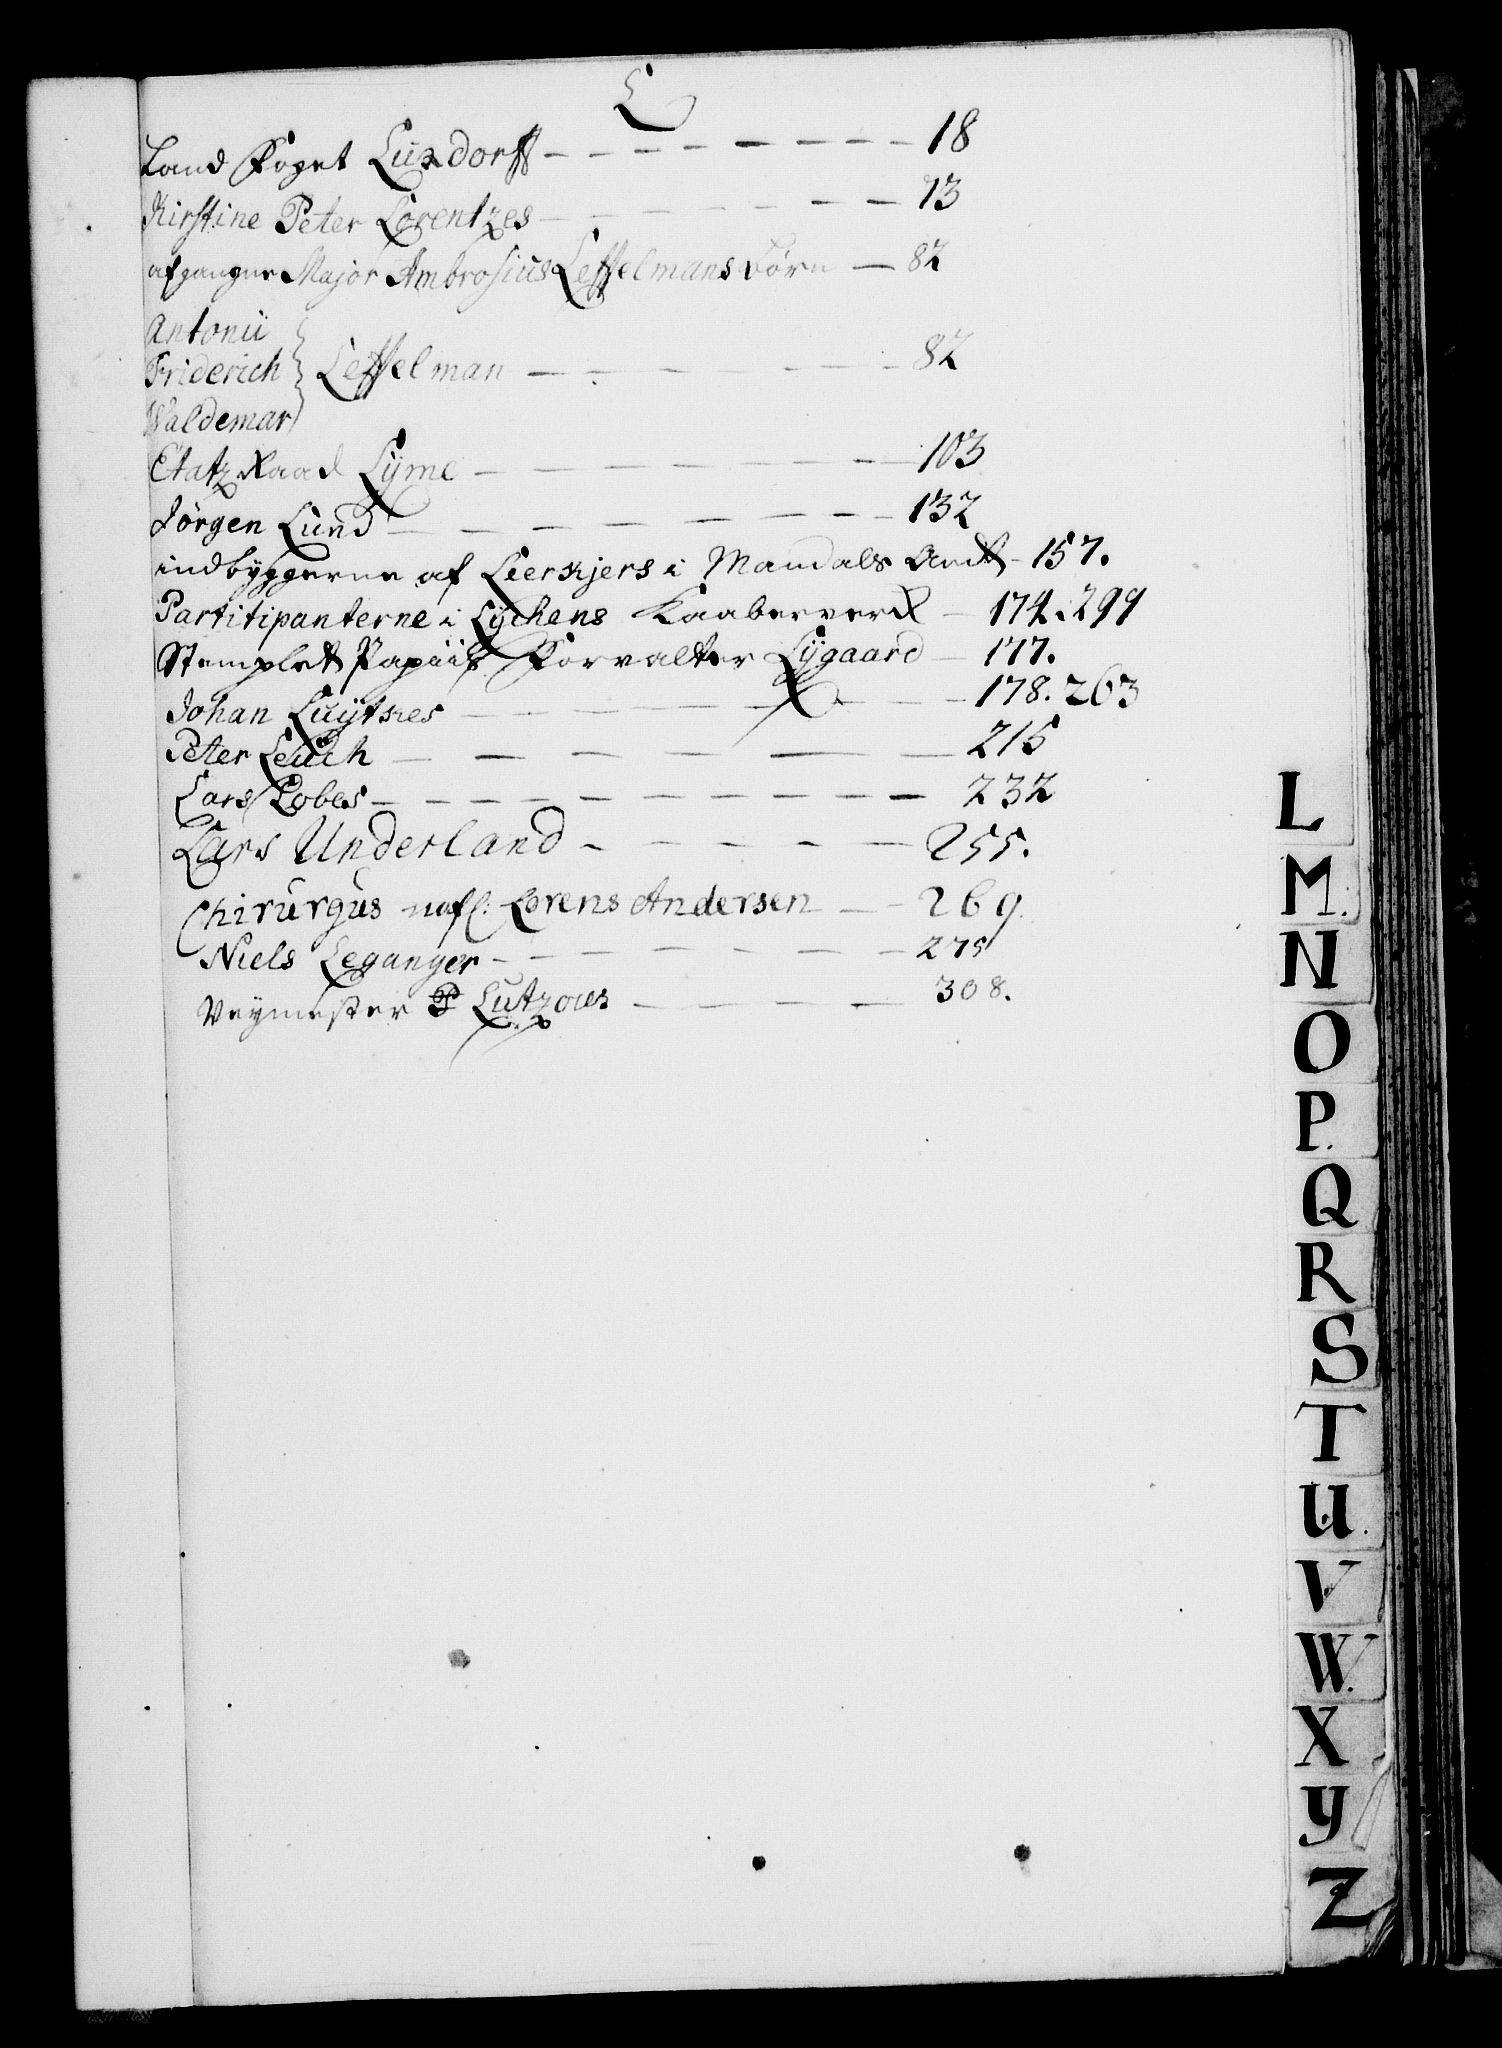 L
Land Foget Luxdorff - - - - - - - - - 18
Kirstine Peter Lorentzes - - - - - - - 73
afgangne Major Ambrosius Leffelmans börn — 82
Antonii
Friderich } Leffelman - - - - - - - 82
Waldemar
Etatz Raad Lyme - - - - - - - 103
Jörgen Lund - - - - - - - 132
indbyggerne af Lierskjers i Mandals Amt - 157.
Partitipanterne i Lychens Kaaberverk - 174. 299
Stemplet Papiir Forvalter Lygaard - 177.
Johan Luytkes - - - - - - - 178. 263
Peter Leuch - - - - - 215
Lars Lobes - - - - - - - - - 232
Lars Underland - - - - - 255.
Chirurgus nafl: Lorens Andersen - - 269
Niels Leganger - - - - - - - 275
Veymester P Lutzows - - - - 308.
L
M.
N
O
P.
Q
R
S
T
U.
V
W.
X
Y
Z